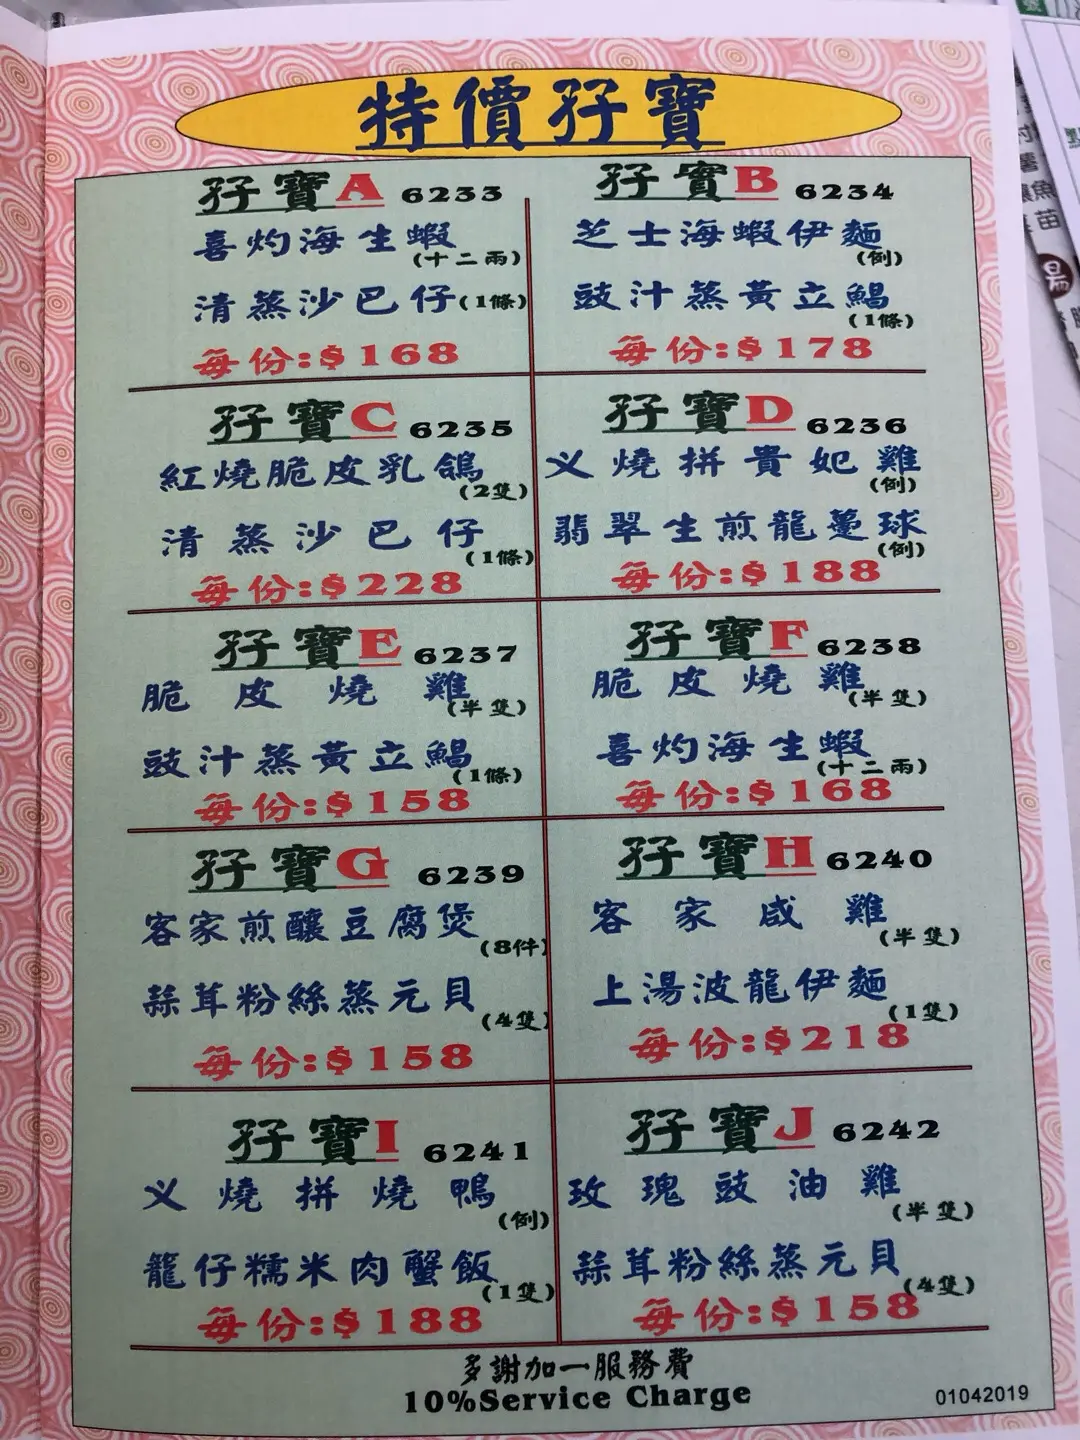 特價孖寶
孖寶A 6233
喜灼海生蝦(十二兩)
清蒸沙巴仔(1條)
每份:$168
孖寶B 6234
芝士海蝦伊麵(例)
豉汁蒸黃立鯧(1條)
每份:$178
孖寶C 6235
紅燒脆皮乳鴿(2隻)
清蒸沙巴仔(1條)
每份:$228
孖寶D 6236
义燒拼貴妃雞(例)
翡翠生煎龍躉球(例)
每份:$188
孖寶E 6237
脆皮燒雞(半隻)
豉汁蒸黃立鯧(1條)
每份:$158
孖寶F 6238
脆皮燒雞(半隻)
喜灼海生蝦(十二兩)
每份:$168
孖寶G 6239
客家煎釀豆腐煲(8件)
蒜茸粉絲蒸元貝(4隻)
每份:$158
孖寶H 6240
客家咸雞(半隻)
上湯波龍伊麵(1隻)
每份:$218
孖寶I 6241
义燒拼燒鴨(例)
籠仔糯米肉蟹飯(1隻)
每份:$188
孖寶J 6242
玫瑰豉油雞(半隻)
蒜茸粉絲蒸元貝(4隻)
每份:$158
多謝加一服務費
10%Service Charge
01042019